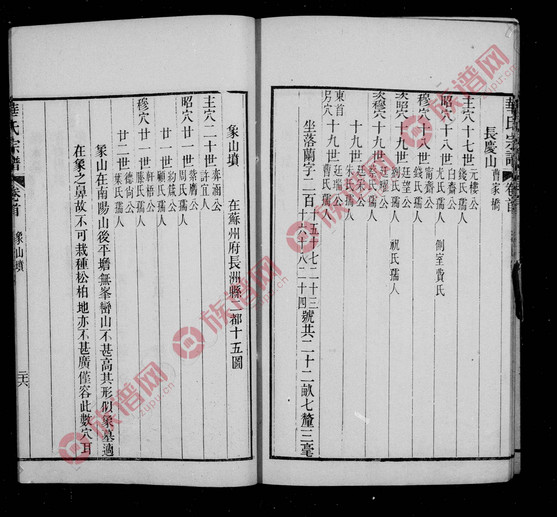 華氏宗譜 卷首
長慶山 曹家橋
主穴十七世 元樓公 錢氏孺人
昭穴十八世 白齋公 尤氏孺人 側室費氏
穆穴十八世 南齋公 錢氏孺人
次昭穴十九世 廷望公 劉氏孺人 祝氏孺人
次穆穴十九世 廷瑞公 蔡氏孺人
十九世 朱氏孺人
東首 十九世
另穴 十九世 曹氏孺人
坐落蘭字二百十五七二十三十六十八二十四號共二十二畝七釐三毫
象山墳 在蘇州府長洲縣一都十五圖
主穴二十世 許宜人
昭穴廿一世 紫鷹公 周孺人
廿二世 鈞箴公 顧孺人
穆穴廿一世 軒梧公 滕氏孺人
廿二世 德洵公 葉氏孺人
象山在南陽山後平塘無峯巒山不甚高其形似象墓適
在象之鼻故不可栽種松柏地亦不甚廣僅容此數穴耳
華氏宗譜 卷首 象山墳 二六
族谱网
zupu.cn